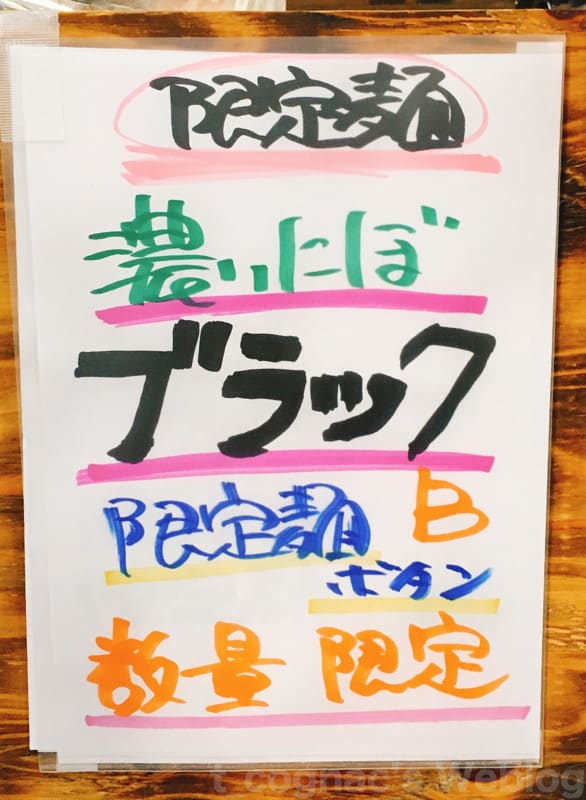 限定麺
濃いにぼ
ブラック
限定麺 B
ボタン
数量 限定
t_cognac's Weblog